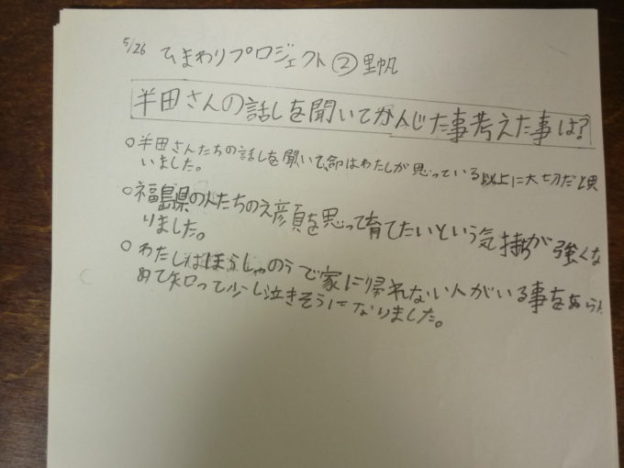 5/26 ひまわりプロジェクト② 里帆
半田さんの話しを聞いてかんじた事考えた事は？
○半田さんたちの話しを聞いて、命はわたしが思っている以上に大切だと思
いました。
○福島県の人たちのえ顔を思って育てたいという気持が強くな
りました。
○わたしはほうしゃのうで家に帰れない人がいる事をあらた
めて知って少し泣きそうになりました。